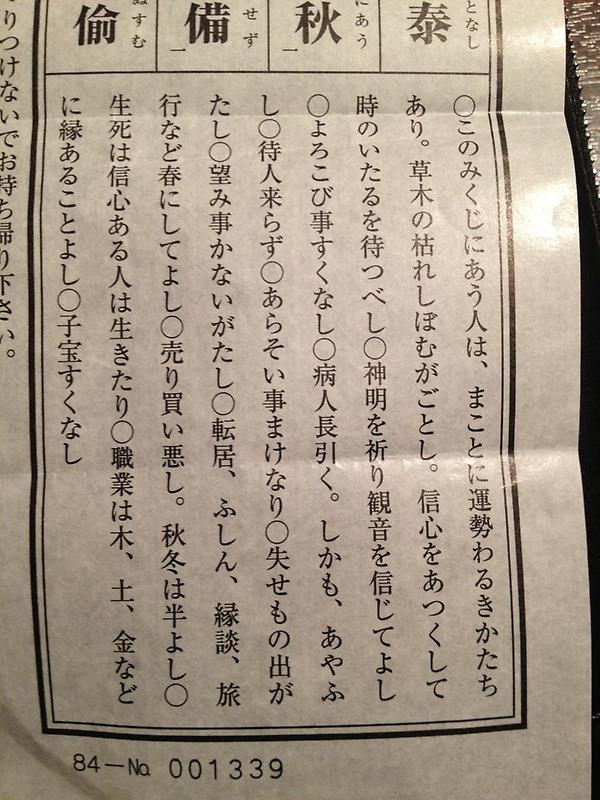 泰となし
秋にあう
備せず
偷ぬすむ
一
一
○このみくじにあう人は、まことに運勢わるきかたち
あり。草木の枯れしぼむがごとし。信心をあつくして
時のいたるを待つべし○神明を祈り観音を信じてよし
○よろこび事すくなし○病人長引く。しかも、あやふ
し○待人来らず○あらそい事まけなり○失せもの出が
たし○望み事かないがたし○転居、ふしん、縁談、旅
行など春にしてよし○売り買い悪し。秋冬は半よし○
生死は信心ある人は生きたり○職業は木、土、金など
に縁あることよし○子宝すくなし
りつけないでお持ち帰り下さい。
84－№ 001339